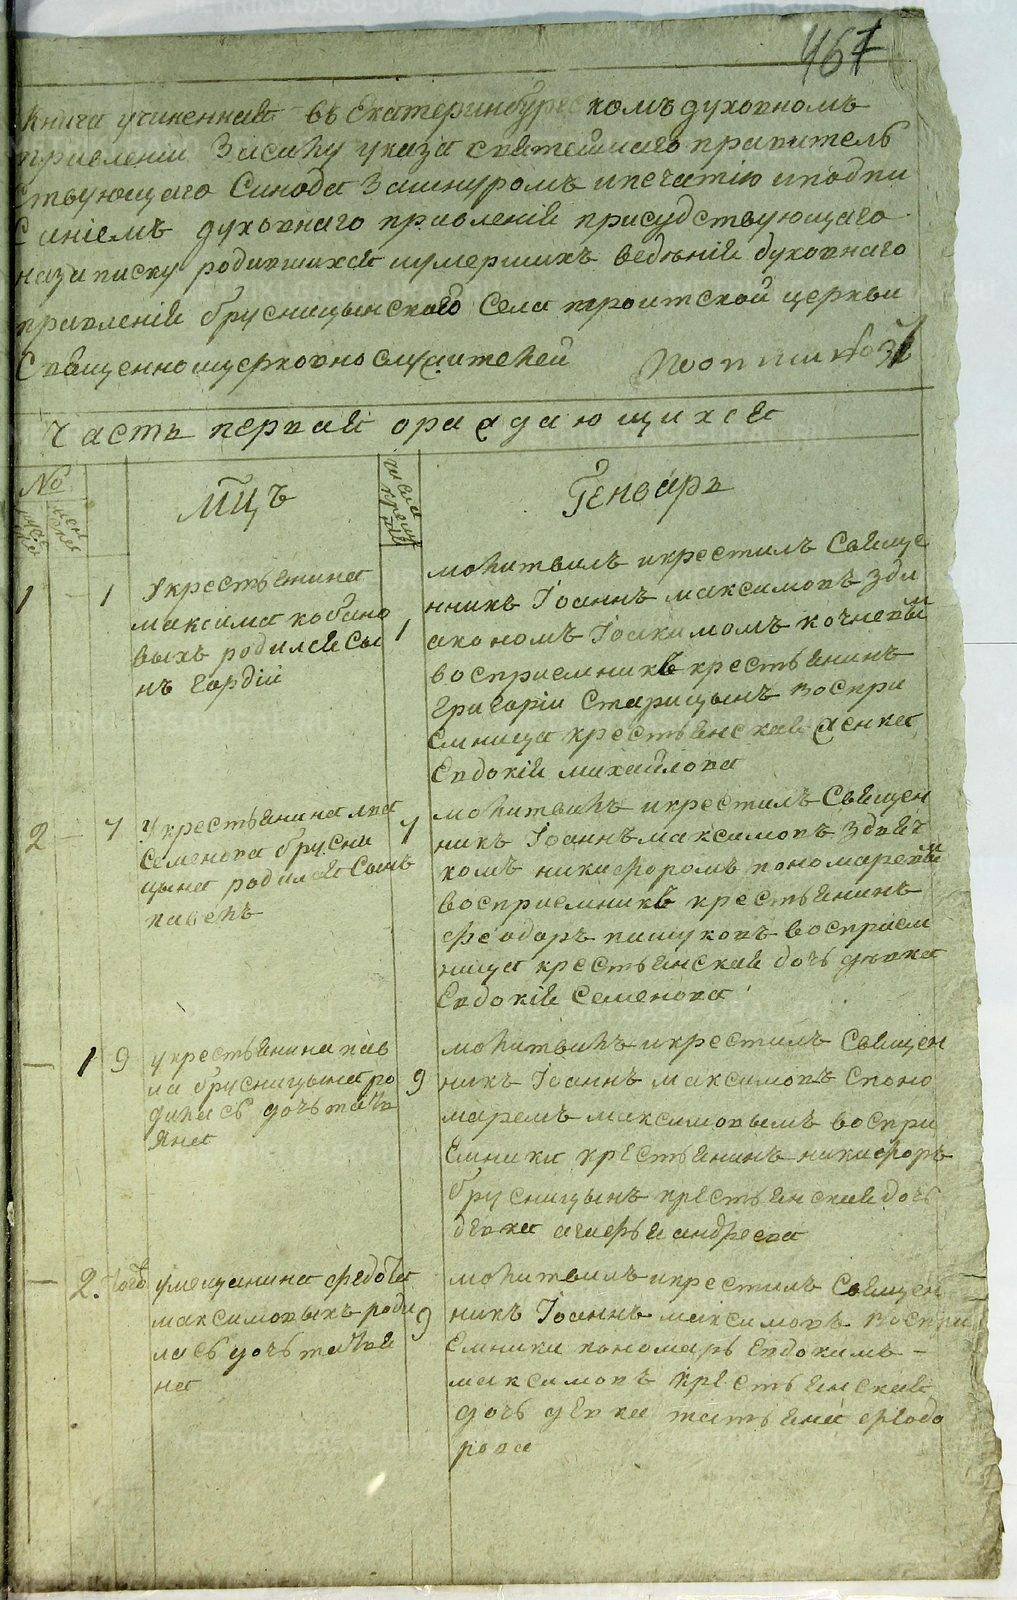 467
Книга учиненная въ Екатеринбургскомъ духовномъ
правлении Засилу указа святейшаго правитель
Ствующаго Синода Зашнуромъ ипечатию иподпи
Саниемъ духовнаго правлений присудствующаго
назаписку родившихся иумершихъ ведѣний духовнаго
правлений брусницынского Села троитской церкви
Священно ицерковно служителей
Часть первая ораждающихся
No
Мцъ
Генварь
1 1 Укрестьянина
максима кабано
выхъ родился сы
нъ гордій
1
молитвилъ икрестилъ Свяще
нникъ Iоаннъ максимовъ зди
акономъ Iоакимомъ кочневы
восприемникъ крестьянинъ
григории Старицынъ воспри
Емница крестьянская женка
Евдокия михайлова
2 7 Укрестьянина
Семенова брусни
цына родился Сынъ
павелъ
7
молитвилъ икрестилъ Священ
никъ Iоаннъ максимовъ здьяч
комъ никифоромъ пономаревы
восприемникъ крестьянинъ
феодоръ пашуковъ восприем
ница крестьянская дочь девка
Евдокия Семенова
1 9 укрестьянина пав
ла брусницына ро
дилась дочь татья
яна
9
молитвилъ икрестилъ Священ
никъ Iоаннъ максимовъ Споно
маремъ максимовымъ воспри
Емники крестьянинъ никифоръ
брусницынъ крестьянская дочь
девка агафья андреева
2. того умещанина федота
максимовыхъ роди
лась дочь татья
на
9
молитвилъ икрестилъ Священ
никъ Iоаннъ максимовъ воспри
Емники пономарь Евдокимъ
максимовъ крестьянская
дочь девка татьяна феодо
рова